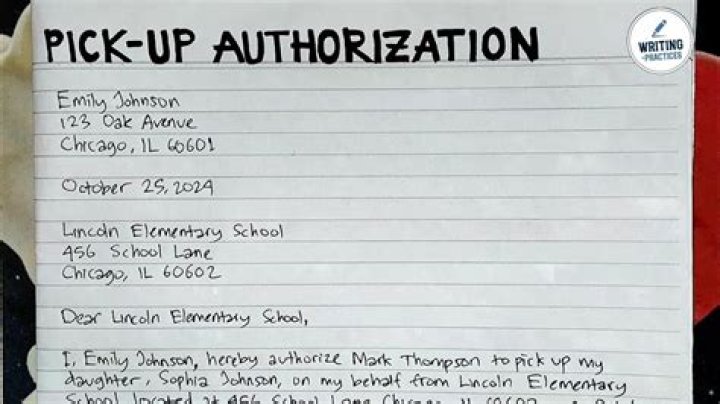 PICK-UP AUTHORIZATION
WRITING
PRACTICES
Emily Johnson
123 Oak Avenue
Chicago, IL 60601
October 25, 2024
Lincoln Elementary School
456 School Lane
Chicago, IL 60602
Dear Lincoln Elementary School,
I, Emily Johnson, hereby authorize Mark Thompson to pick up my
daughter, Sophia Johnson, on my behalf from Lincoln Elementary
School located at 456 School Lane Chicago, IL 60602